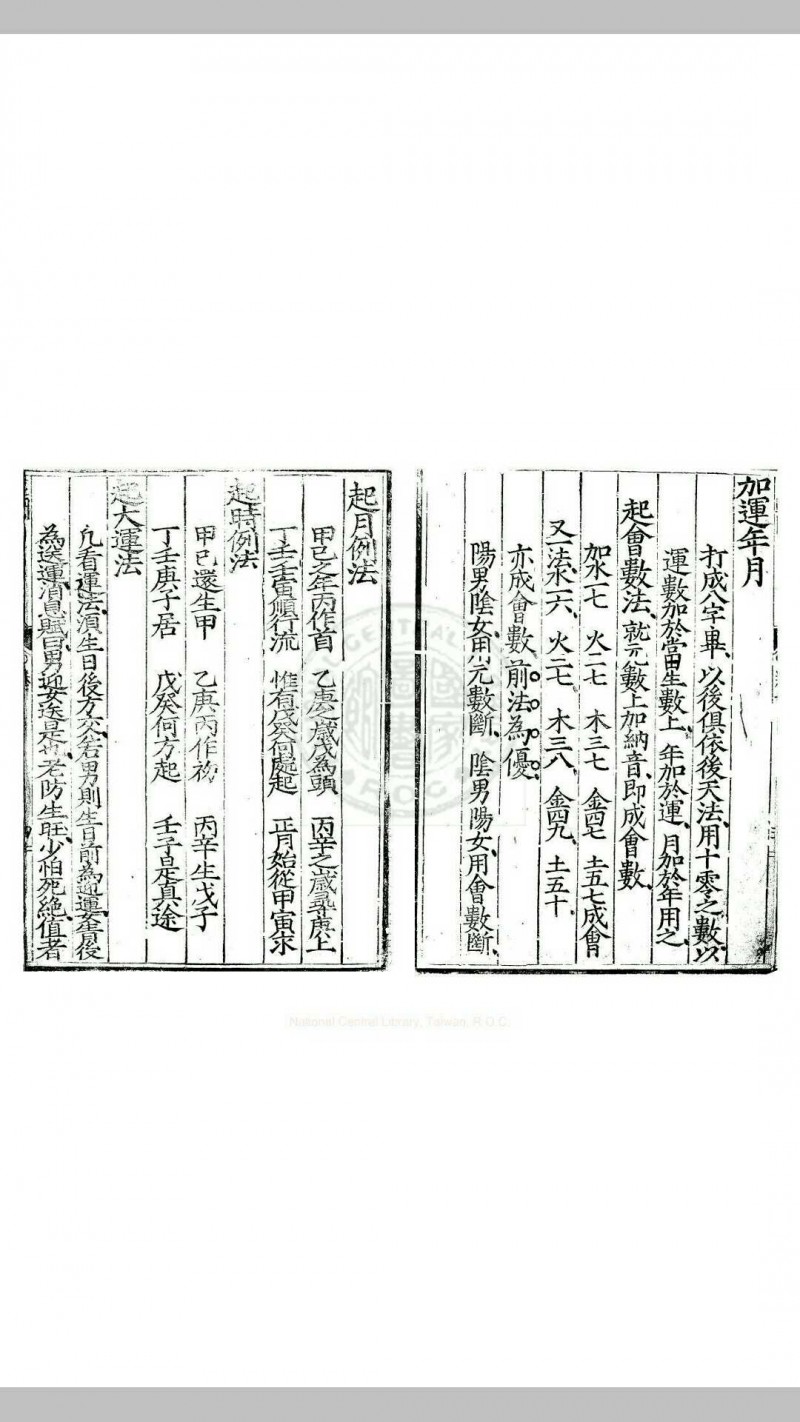 加運年月
打成八字畢、以後俱依後天法、用十零之數、以
運數加於當生數上、年加於運、月加於年用之、
起會數法、就元數上加納音、即成會數、
如水一七 火二七 木三七 金四七 土五七成會
又一法、水一六、火二七、木三八、金四九、土五十、
亦成會數、前法為優、
陽男陰女、用元數斷、陰男陽女、用會數斷、
起月例法
甲己之年丙作首 乙庚之歲戊為頭 丙辛之歲尋庚上
丁壬壬寅順行流 惟有戊癸何處起 正月始從甲寅求
起時例法
甲己還生甲 乙庚丙作初 丙辛生戊子
丁壬庚子居 戊癸何方起 壬子是真途
起大運法
凡看運法、湏生日後方交、若男則生日前為迎運、妾後
為送運、消息賦曰、男迎女送是也、老防生旺、少怕死絶、值者
National Central Library, Taiwan, R.O.C.